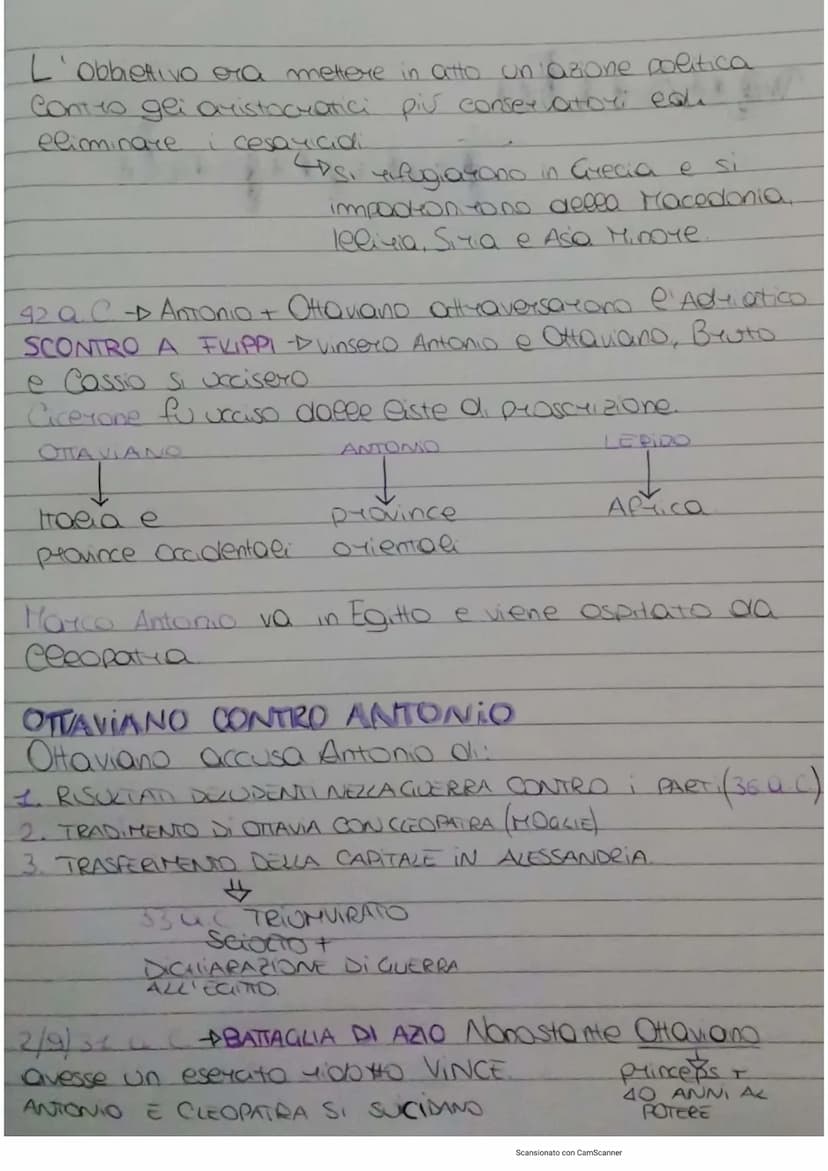 L'obbiettivo era mettere in atto un'azione politica
contro gli aristocratici più conservatori ed
eliminare i cesaricidi
↳ Si rifugiarono in Grecia e si
impadronirono della Macedonia,
Illiria, Siria e Asia Minore.
42 a.C → Antonio + Ottaviano attraversarono l'Adriatico
SCONTRO A FILIPPI → vinsero Antonio e Ottaviano, Bruto
e Cassio si uccisero
Cicerone fu ucciso dalle liste di proscrizione.
OTTAVIANO ANTONIO LEPIDO
↓ ↓ ↓
Italia e province Africa
province occidentali orientali
Marco Antonio va in Egitto e viene ospitato da
Cleopatra
OTTAVIANO CONTRO ANTONIO
Ottaviano accusa Antonio di:
1. RISULTATI DELUDENTI NELLA GUERRA CONTRO i PARTI (36 a C)
2. TRADIMENTO DI OTTAVIA CON CLEOPATRA (MOGLIE)
3. TRASFERIMENTO DELLA CAPITALE IN ALESSANDRIA
⇓
33 a C TRIUMVIRATO
Sciolto +
DICHIARAZIONE DI GUERRA
ALL'EGITTO.
2/9/31 a C → BATTAGLIA DI AZIO Nonostante Ottaviano
avesse un esercito ridotto VINCE. princeps +
ANTONIO E CLEOPATRA SI SUICIDANO 40 ANNI AL
POTERE
Scansionato con CamScanner